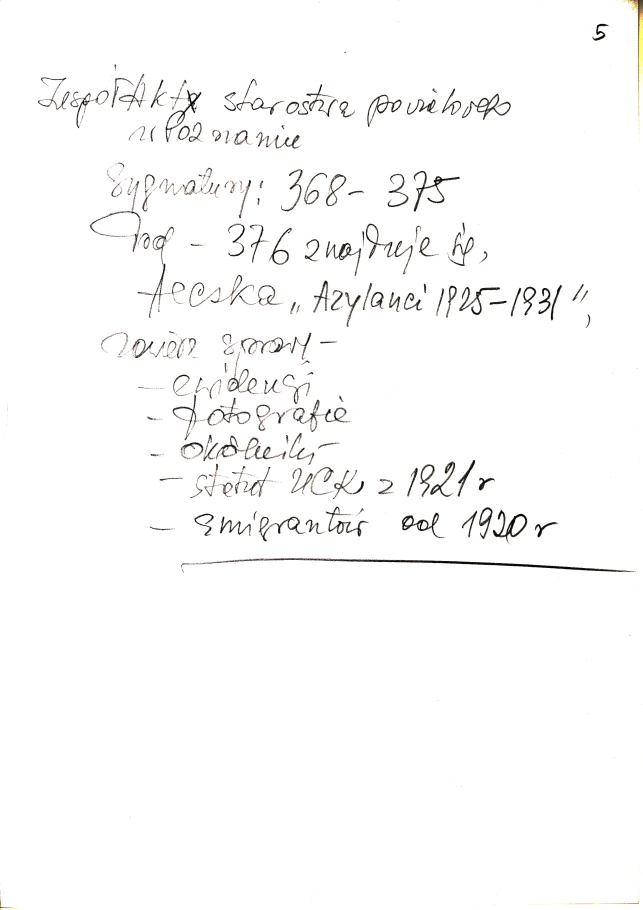 5
Zespół Akt starostwa powiatowego
w Poznaniu
Sygnatury: 368 - 375
Pod - 376 znajduje się,
teczka „Azylanci 1925-1931",
zawiera sprawy -
- ewidencji
- fotografie
- okólniki
- statut UCK z 1921 r
- emigrantów od 1920 r